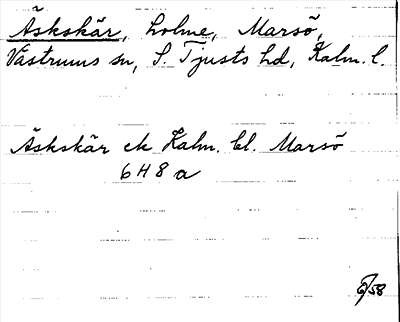 Äskskär, holme, Marsö,
Västrums sn, S. Tjusts hd, Kalm. l.
Äskskär ek Kalm. bl. Marsö
6 H 8 a
/58